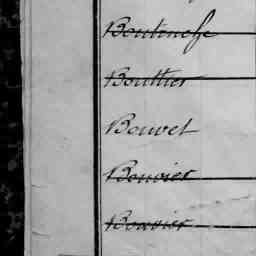 Boutinche
Bouttier
Bouvet
Bouvier
Bouvier